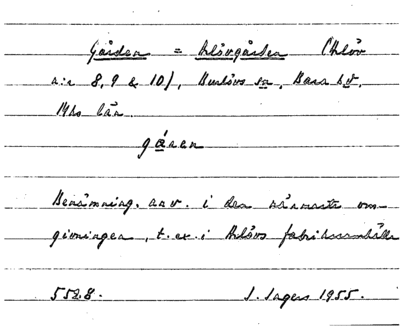 Gården = Arlövgården (Arlöv
n:r 8, 9 & 10), Burlövs sn, Bara hd,
Mhs län.
gåren
Benämning. anv. i den närmaste om-
givningen, t. ex. i Arlövs fabrikssamhälle
5528. I. Ingers 1955.